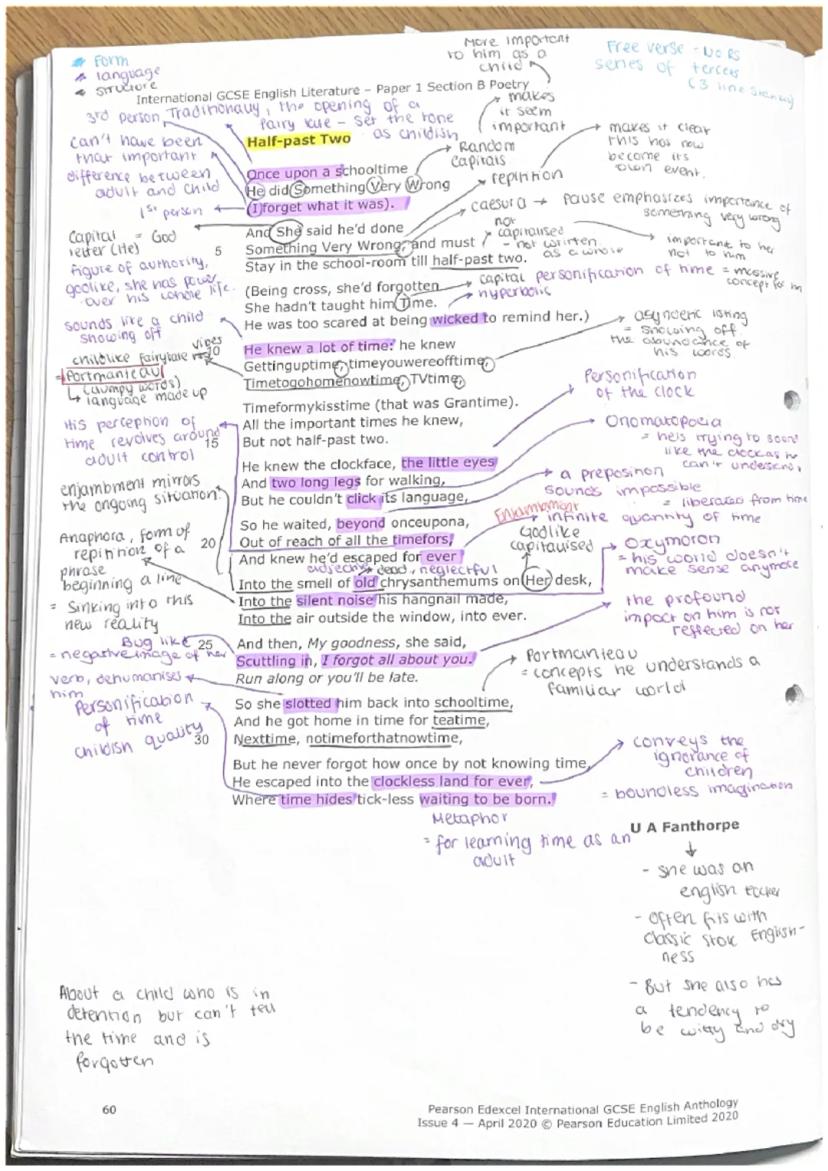 * Form
* language
* structure
More important
to him as a
child
Free verse - No RS
series of tercets
(3 line stanzas)
International GCSE English Literature – Paper 1 Section B Poetry
3rd person
Traditionally, the opening of a
fairy tale - set the tone
as childish
makes
it seem
important
can't have been
that important
difference between
adult and child
1st person
Random
capitals
repition
makes it clear
this has now
become its
own event.
caesura → pause emphasizes importance of
something very wrong
not
capitalised
- not written
as a whole
important to her
not to him
Half-past Two
Once upon a schooltime
He did Something Very Wrong
(I forget what it was).
And She said he'd done
5 Something Very Wrong, and must
Stay in the school-room till half-past two.
(Being cross, she'd forgotten
She hadn't taught him Time.
He was too scared at being wicked to remind her.)
10 He knew a lot of time: he knew
Gettinguptime, timeyouwereofftime,
Timetogohomenowtime, TVtime,
Timeformykisstime (that was Grantime).
All the important times he knew,
15 But not half-past two.
He knew the clockface, the little eyes
And two long legs for walking,
But he couldn't click its language,
So he waited, beyond onceupona,
20 Out of reach of all the timefors,
And knew he'd escaped for ever
Into the smell of old chrysanthemums on Her desk,
Into the silent noise his hangnail made,
Into the air outside the window, into ever.
25 And then, My goodness, she said,
Scuttling in, I forgot all about you.
Run along or you'll be late.
So she slotted him back into schooltime,
And he got home in time for teatime,
30 Nexttime, notimeforthatnowtime,
But he never forgot how once by not knowing time,
He escaped into the clockless land for ever,
Where time hides tick-less waiting to be born.
U A Fanthorpe
Capital = God
letter (He)
figure of authority,
godlike, she has power
over his whole life.
capital personification of time = massive
concept for him
hyperbolic
sounds like a child
showing off
asyndetic listing
= showing off
the abundance of
his words
childlike fairytale vibes
= Portmanteau
↳ (dumpy words)
language made up
Personification
of the clock
His perception of
time revolves around
adult control
Onomatopoeia
= he's trying to sound
like the clock as he
can't understand,
enjambment mirrors
the ongoing situation.
a preposition
sounds impossible
= liberated from time
Enjambment
infinite quantity of time
Anaphora, form of
repitition of a
phrase
beginning a line
= Sinking into this
new reality
adjective → dead, neglectful
Godlike
capitalised
Oxymoron
= his world doesn't
make sense anymore
the profound
impact on him is not
reflected on her
Bug like
= negative image of her
verb, dehumanises
him
Portmanteau
= concepts he understands a
familiar world
Personification
of time
childish quality
conveys the
ignorance of
children
= boundless imagination
Metaphor
= for learning time as an
adult
- she was an
english teacher
- often fits with
classic English-
ness
- But she also has
a tendency to
be witty and dry
About a child who is in
detention but can't tell
the time and is
forgotten
60
Pearson Edexcel International GCSE English Anthology
Issue 4 — April 2020 © Pearson Education Limited 2020